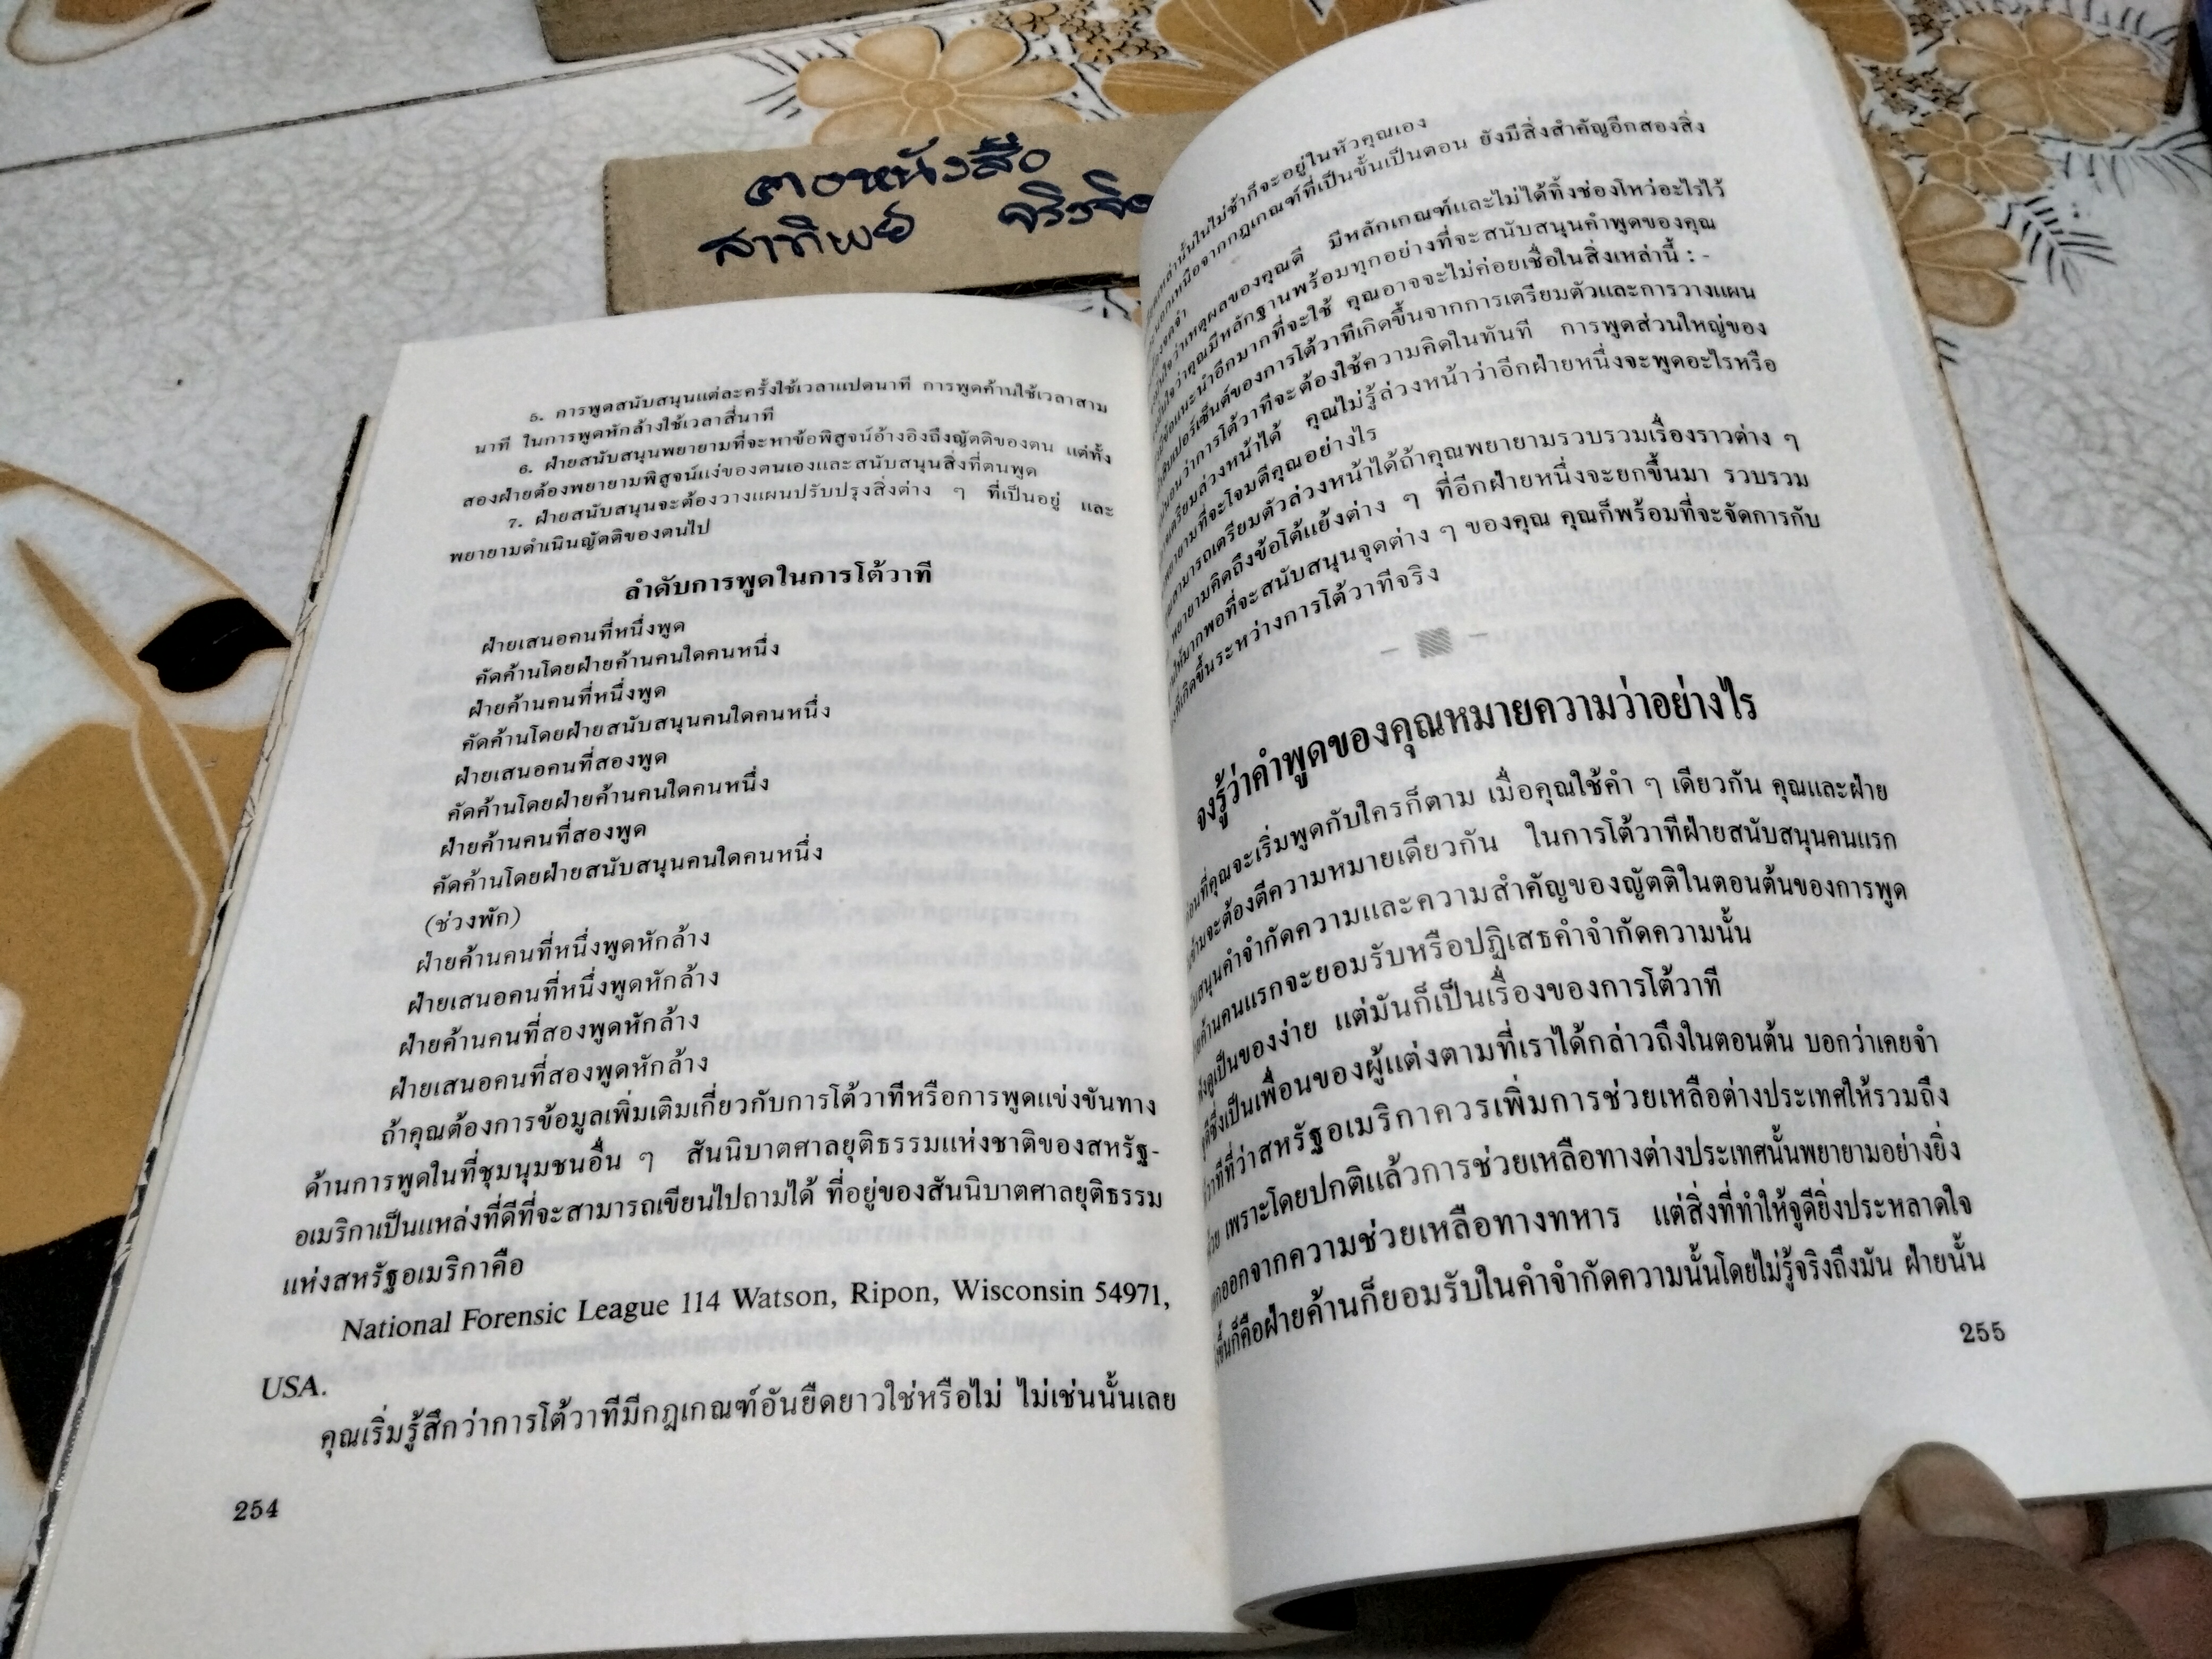 คอหนังสือ
สาทิพย์ จริงจิต
5. การพูดสนับสนุนแต่ละครั้งใช้เวลาแปดนาที การพูดค้านใช้เวลาสาม
นาที ในการพูดหักล้างใช้เวลาสี่นาที
6. ฝ่ายสนับสนุนพยายามที่จะหาข้อพิสูจน์อ้างอิงถึงญัตติของตน แต่ทั้ง
สองฝ่ายต้องพยายามพิสูจน์แง่ของตนเองและสนับสนุนสิ่งที่ตนพูด
7. ฝ่ายสนับสนุนจะต้องวางแผนปรับปรุงสิ่งต่าง ๆ ที่เป็นอยู่ และ
พยายามดำเนินญัตติของตนไป
ลำดับการพูดในการโต้วาที
ฝ่ายเสนอคนที่หนึ่งพูด
คัดค้านโดยฝ่ายค้านคนใดคนหนึ่ง
ฝ่ายค้านคนที่หนึ่งพูด
คัดค้านโดยฝ่ายสนับสนุนคนใดคนหนึ่ง
ฝ่ายเสนอคนที่สองพูด
คัดค้านโดยฝ่ายค้านคนใดคนหนึ่ง
ฝ่ายค้านคนที่สองพูด
คัดค้านโดยฝ่ายสนับสนุนคนใดคนหนึ่ง
(ช่วงพัก)
ฝ่ายค้านคนที่หนึ่งพูดหักล้าง
ฝ่ายเสนอคนที่หนึ่งพูดหักล้าง
ฝ่ายค้านคนที่สองพูดหักล้าง
ฝ่ายเสนอคนที่สองพูดหักล้าง
ถ้าคุณต้องการข้อมูลเพิ่มเติมเกี่ยวกับการโต้วาทีหรือการพูดแข่งขันทาง
ด้านการพูดในที่ชุมนุมชนอื่น ๆ สันนิบาตศาลยุติธรรมแห่งชาติของสหรัฐ-
อเมริกาเป็นแหล่งที่ดีที่จะสามารถเขียนไปถามได้ ที่อยู่ของสันนิบาตศาลยุติธรรม
แห่งสหรัฐอเมริกาคือ
National Forensic League 114 Watson, Ripon, Wisconsin 54971,
USA.
คุณเริ่มรู้สึกว่าการโต้วาทีมีกฎเกณฑ์อันยืดยาวใช่หรือไม่ ไม่เช่นนั้นเลย
254
เหล่านั้นในไม่ช้าก็จะอยู่ในหัวคุณเอง
นอกเหนือจากกฎเกณฑ์ที่เป็นขั้นเป็นตอน ยังมีสิ่งสำคัญอีกสองสิ่ง
ว่าเหตุผลของคุณดี มีหลักเกณฑ์และไม่ได้ทิ้งช่องโหว่อะไรไว้
ว่าคุณมีหลักฐานพร้อมทุกอย่างที่จะสนับสนุนคำพูดของคุณ
ข้อแนะนำอีกมากที่จะใช้ คุณอาจจะไม่ค่อยเชื่อในสิ่งเหล่านี้ : -
เปอร์เซ็นต์ของการโต้วาทีเกิดขึ้นจากการเตรียมตัวและการวางแผน
ว่าการโต้วาทีจะต้องใช้ความคิดในทันที การพูดส่วนใหญ่ของ
เตรียมล่วงหน้าได้ คุณไม่รู้ล่วงหน้าว่าอีกฝ่ายหนึ่งจะพูดอะไรหรือ
พยายามที่จะโจมตีคุณอย่างไร
สามารถเตรียมตัวล่วงหน้าได้ถ้าคุณพยายามรวบรวมเรื่องราวต่าง ๆ
พยายามคิดถึงข้อโต้แย้งต่าง ๆ ที่อีกฝ่ายหนึ่งจะยกขึ้นมา รวบรวม
ให้มากพอที่จะสนับสนุนจุดต่าง ๆ ของคุณ คุณก็พร้อมที่จะจัดการกับ
ที่เกิดขึ้นระหว่างการโต้วาทีจริง
จงรู้ว่าคำพูดของคุณหมายความว่าอย่างไร
ก่อนที่คุณจะเริ่มพูดกับใครก็ตาม เมื่อคุณใช้คำ ๆ เดียวกัน คุณและฝ่าย
จะต้องตีความหมายเดียวกัน ในการโต้วาทีฝ่ายสนับสนุนคนแรก
สนุนคำจำกัดความและความสำคัญของญัตติในตอนต้นของการพูด
ค้านคนแรกจะยอมรับหรือปฏิเสธคำจำกัดความนั้น
ดูเป็นของง่าย แต่มันก็เป็นเรื่องของการโต้วาที
ซึ่งเป็นเพื่อนของผู้แต่งตามที่เราได้กล่าวถึงในตอนต้น บอกว่าเคยจำ
ที่ว่าสหรัฐอเมริกาควรเพิ่มการช่วยเหลือต่างประเทศให้รวมถึง
ด้วย เพราะโดยปกติแล้วการช่วยเหลือทางต่างประเทศนั้นพยายามอย่างยิ่ง
ออกจากความช่วยเหลือทางทหาร แต่สิ่งที่ทำให้จูดียิ่งประหลาดใจ
ขึ้นก็คือฝ่ายค้านก็ยอมรับในคำจำกัดความนั้นโดยไม่รู้จริงถึงมัน ฝ่ายนั้น
255